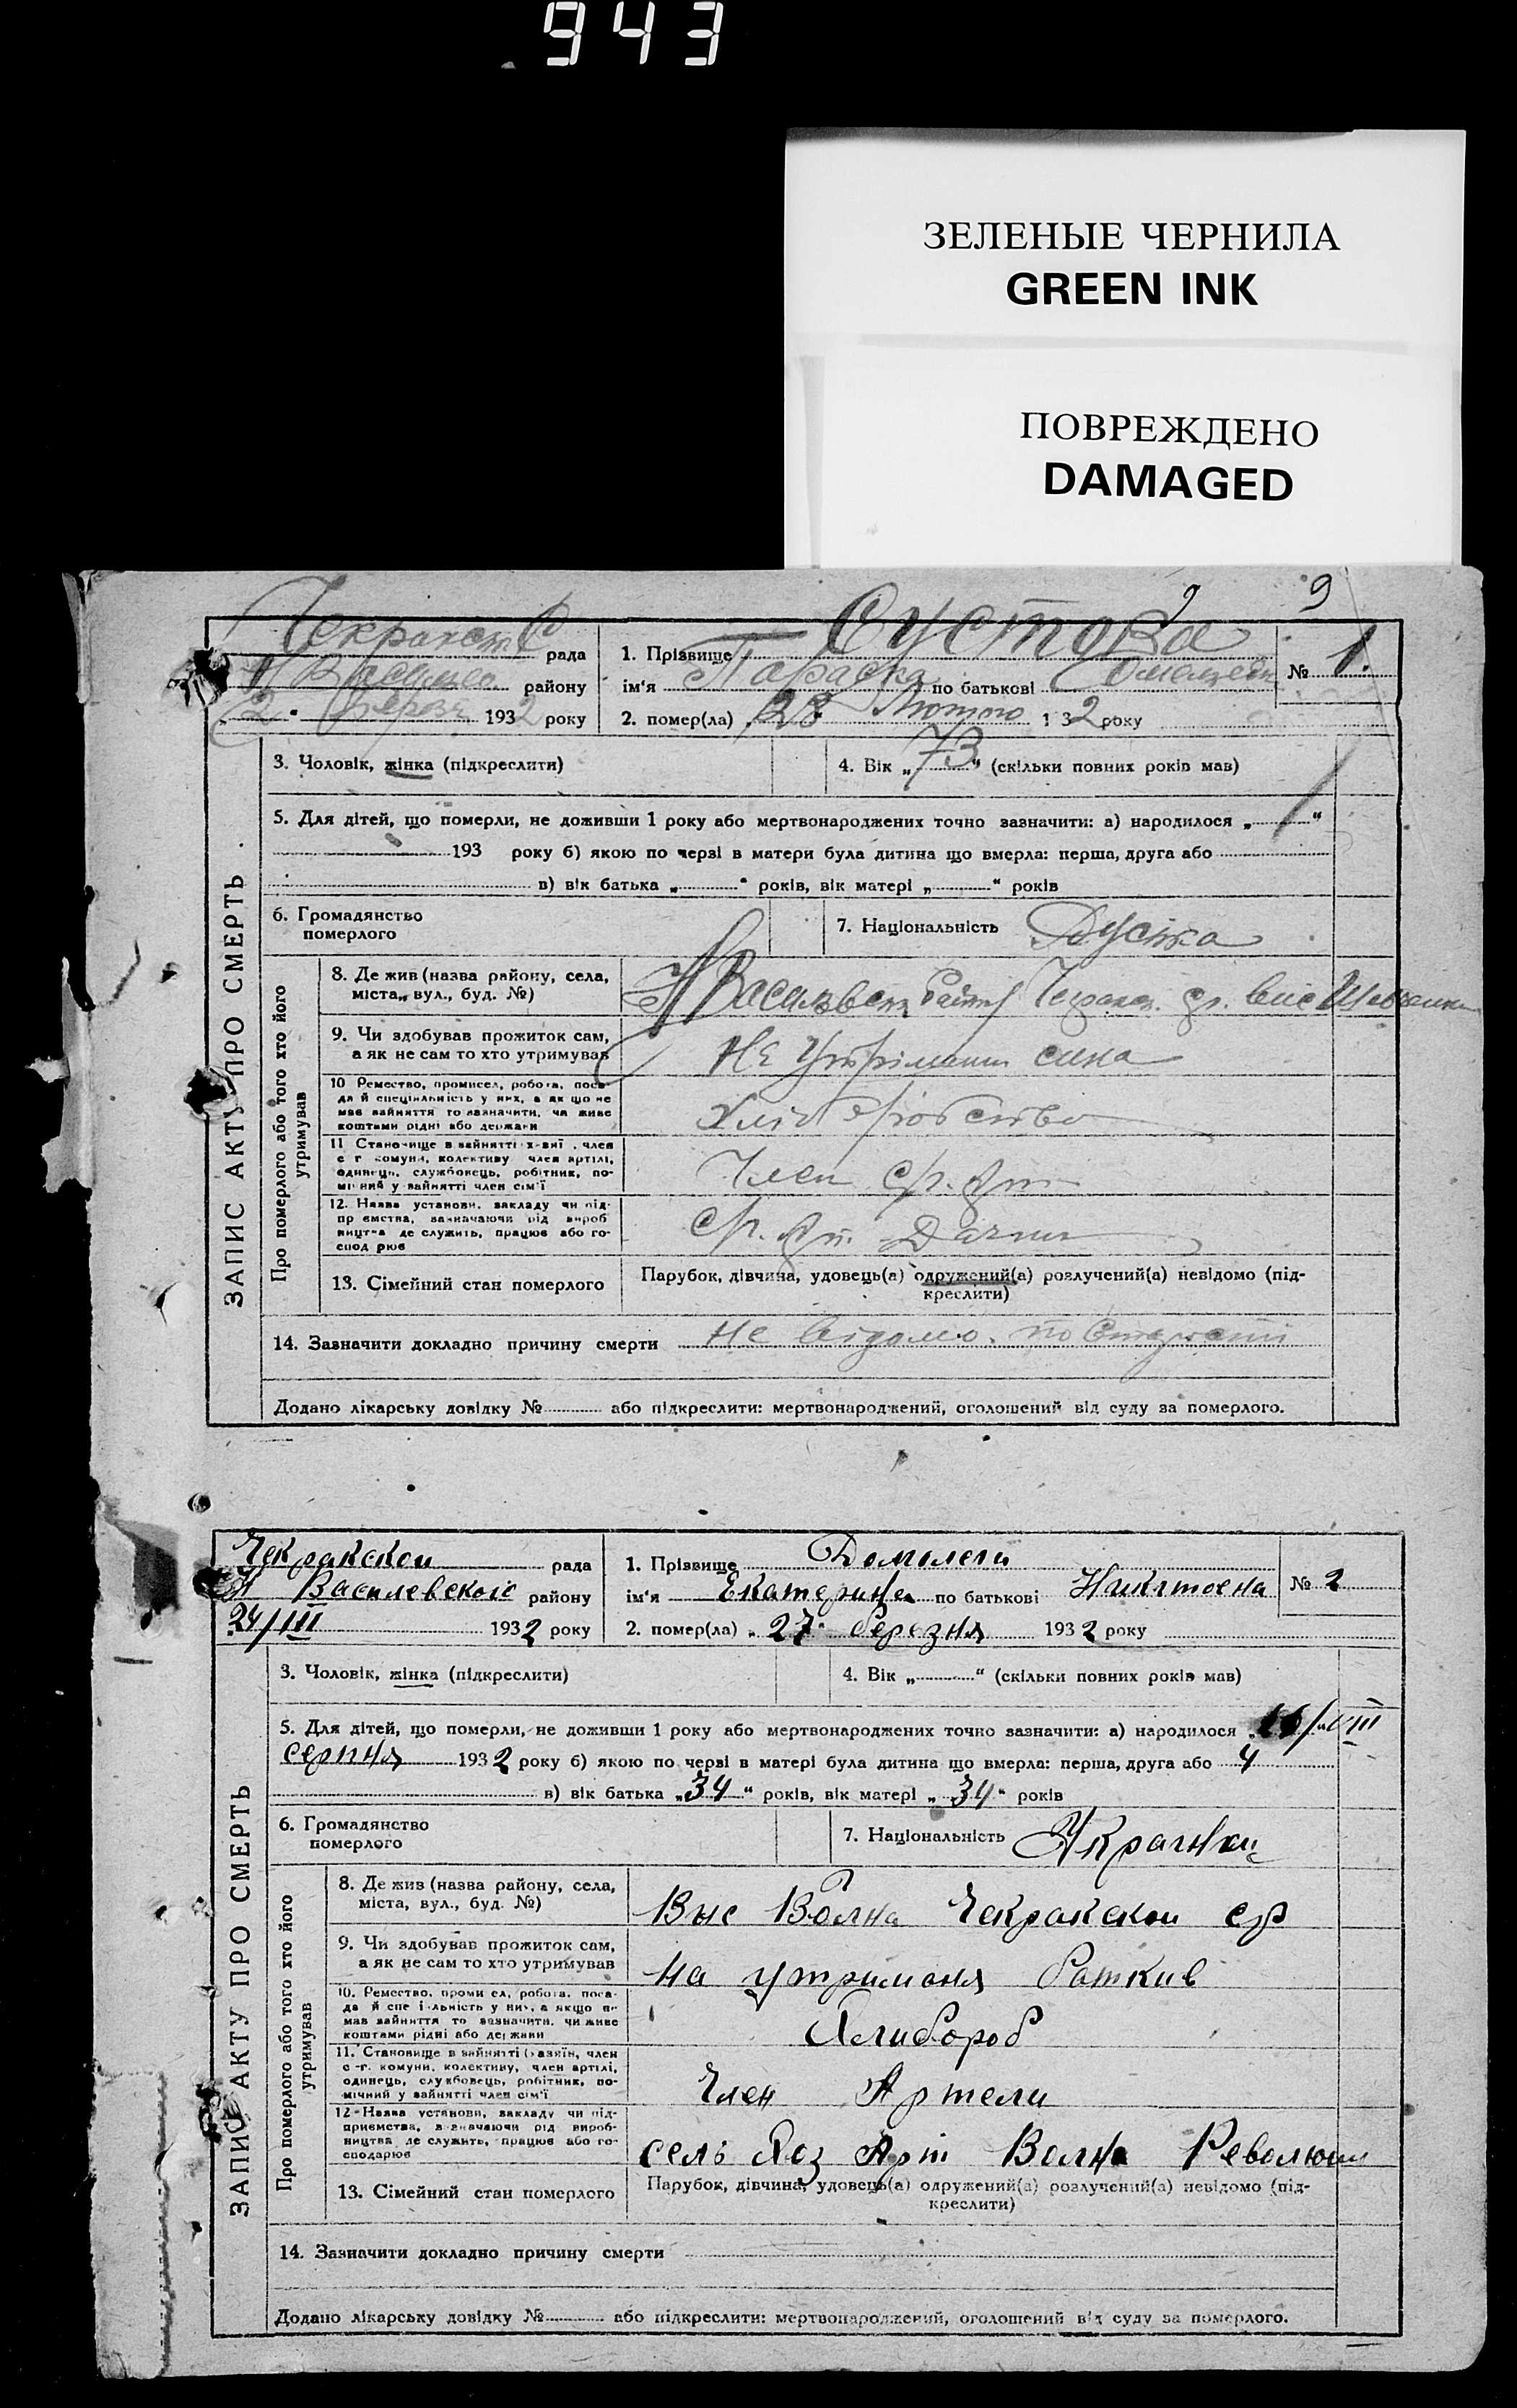 943
ЗЕЛЕНЫЕ ЧЕРНИЛА
GREEN INK
ПОВРЕЖДЕНО
DAMAGED
9
ЗАПИС АКТУ ПРО СМЕРТЬ
рада
району
2 1932 року
1. Прізвище Сустова
ім'я Параска по батькові
№ 1.
2. помер(ла) „28" Лютого 1 32 року
3. Чоловік, жінка (підкреслити)
4. Вік „73" (скільки повних років мав)
5. Для дітей, що померли, не доживши 1 року або мертвонароджених точно зазначити: а) народилося „ "
193 року б) якою по черзі в матери була дитина що вмерла: перша, друга або
в) вік батька „ " років, вік матері „ " років
6. Громадянство
померлого
7. Національність
Про померлого або того хто його
утримував
8. Де жив (назва району, села,
міста, вул., буд. №)
9. Чи здобував прожиток сам,
а як не сам то хто утримував
На сина
10 Ремество, промисел, робота, поса-
да й спеціальність у них, а як що не
мав зайняття то зазначити, чи живе
коштами рідні або держави
Хліборобство
11 Становище в зайнятті хазяїн, член
с г комуни, колективу член артілі,
одинець, службовець, робітник, по-
мічний у зайнятті член сім'ї
Член
12. Назва установи, закладу чи під-
приємства, зазначаючи рід вироб
ництва де служить, працює або го-
сподарює
13. Сімейний стан померлого
Парубок, дівчина, удовець(а) одружений(а) розлучений(а) невідомо (під-
креслити)
14. Зазначити докладно причину смерти не відомо. по Старости
Додано лікарську довідку № або підкреслити: мертвонароджений, оголошений від суду за померлого.
ЗАПИС АКТУ ПРО СМЕРТЬ
Чекракской рада
Василевского району
24/III 1932 року
1. Прізвище
ім'я Екатерина по батькові Никитовна
№ 2
2. помер(ла) „27" березня 1932 року
3. Чоловік, жінка (підкреслити)
4. Вік „ " (скільки повних років мав)
5. Для дітей, що померли, не доживши 1 року або мертвонароджених точно зазначити: а) народилося
серпня 1932 року б) якою по черзі в матері була дитина що вмерла: перша, друга або 4
в) вік батька „34" років, вік матері „34" років
6. Громадянство
померлого
7. Національність Украинка
Про померлого або того хто його
утримував
8. Де жив (назва району, села,
міста, вул., буд. №)
Выс Волна Чекракской ср
9. Чи здобував прожиток сам,
а як не сам то хто утримував
на утриманя Раткив
10. Ремество, промисел, робота, поса-
да й спеціальність у них, а якщо не
мав зайняття то зазначити, чи живе
коштами рідні або держави
Хлибороб
11. Становище в зайнятті (хазяїн, член
с-г. комуни, колективу, член артілі,
одинець, службовець, робітник, по-
мічний у зайнятті член сім'ї
Член Артели
12 Назва установи, закладу чи під-
приємства, зазначаючи рід вироб-
ництва де служить, працює або го-
сподарює
сель Хоз Арт Волна Революции
13. Сімейний стан померлого
Парубок, дівчина, удовець(а) одружений(а) розлучений(а) невідомо (під-
креслити)
14. Зазначити докладно причину смерти
Додано лікарську довідку № або підкреслити: мертвонароджений, оголошений від суду за померлого.